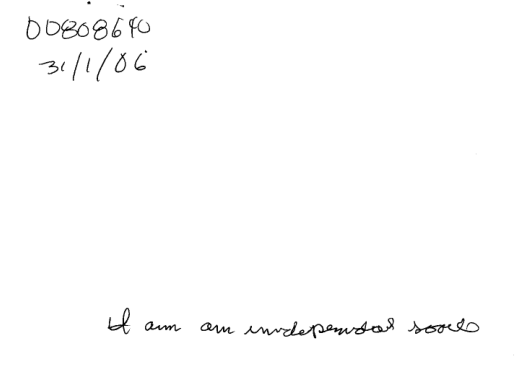 00808640
31/1/06
I am an independat soul